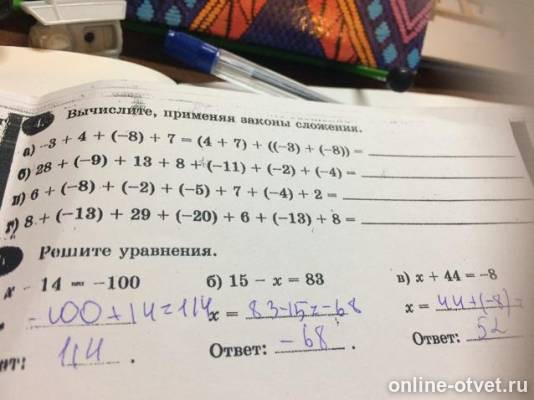 4. Вычислите, применяя законы сложения.
а) -3 + 4 + (-8) + 7 = (4 + 7) + ((-3) + (-8)) =
б) 28 + (-9) + 13 + 8 + (-11) + (-2) + (-4) =
в) 6 + (-8) + (-2) + (-5) + 7 + (-4) + 2 =
г) 8 + (-13) + 29 + (-20) + 6 + (-13) + 8 =
Решите уравнения.
x - 14 = -100 б) 15 - x = 83 в) x + 44 = -8
-100+14=114 x = 83-15=-68 x = 44+(-8)=
114. Ответ: -68. Ответ: 52
online-otvet.ru